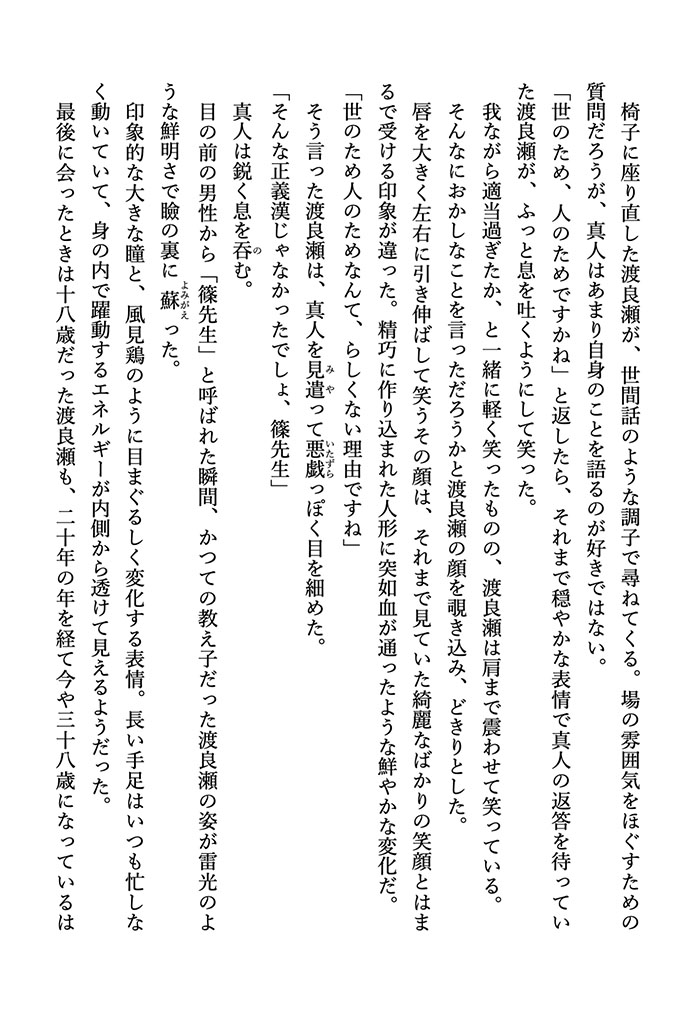 椅子に座り直した渡良瀬が、世間話のような調子で尋ねてくる。場の雰囲気をほぐすための
質問だろうが、真人はあまり自身のことを語るのが好きではない。
「世のため、人のためですかね」と返したら、それまで穏やかな表情で真人の返答を待ってい
た渡良瀬が、ふっと息を吐くようにして笑った。
　我ながら適当過ぎたか、と一緒に軽く笑ったものの、渡良瀬は肩まで震わせて笑っている。
　そんなにおかしなことを言っただろうかと渡良瀬の顔を覗き込み、どきりとした。
　唇を大きく左右に引き伸ばして笑うその顔は、それまで見ていた綺麗なばかりの笑顔とはま
るで受ける印象が違った。精巧に作り込まれた人形に突如血が通ったような鮮やかな変化だ。
「世のため人のためなんて、らしくない理由ですね」
　そう言った渡良瀬は、真人を見遣（みや）って悪戯（いたずら）っぽく目を細めた。
「そんな正義漢じゃなかったでしょ、篠先生」
　真人は鋭く息を呑（の）む。
　目の前の男性から「篠先生」と呼ばれた瞬間、かつての教え子だった渡良瀬の姿が雷光のよ
うな鮮明さで瞼の裏に蘇（よみがえ）った。
　印象的な大きな瞳と、風見鶏のように目まぐるしく変化する表情。長い手足はいつも忙しな
く動いていて、身の内で躍動するエネルギーが内側から透けて見えるようだった。
　最後に会ったときは十八歳だった渡良瀬も、二十年の年を経て今や三十八歳になっているは